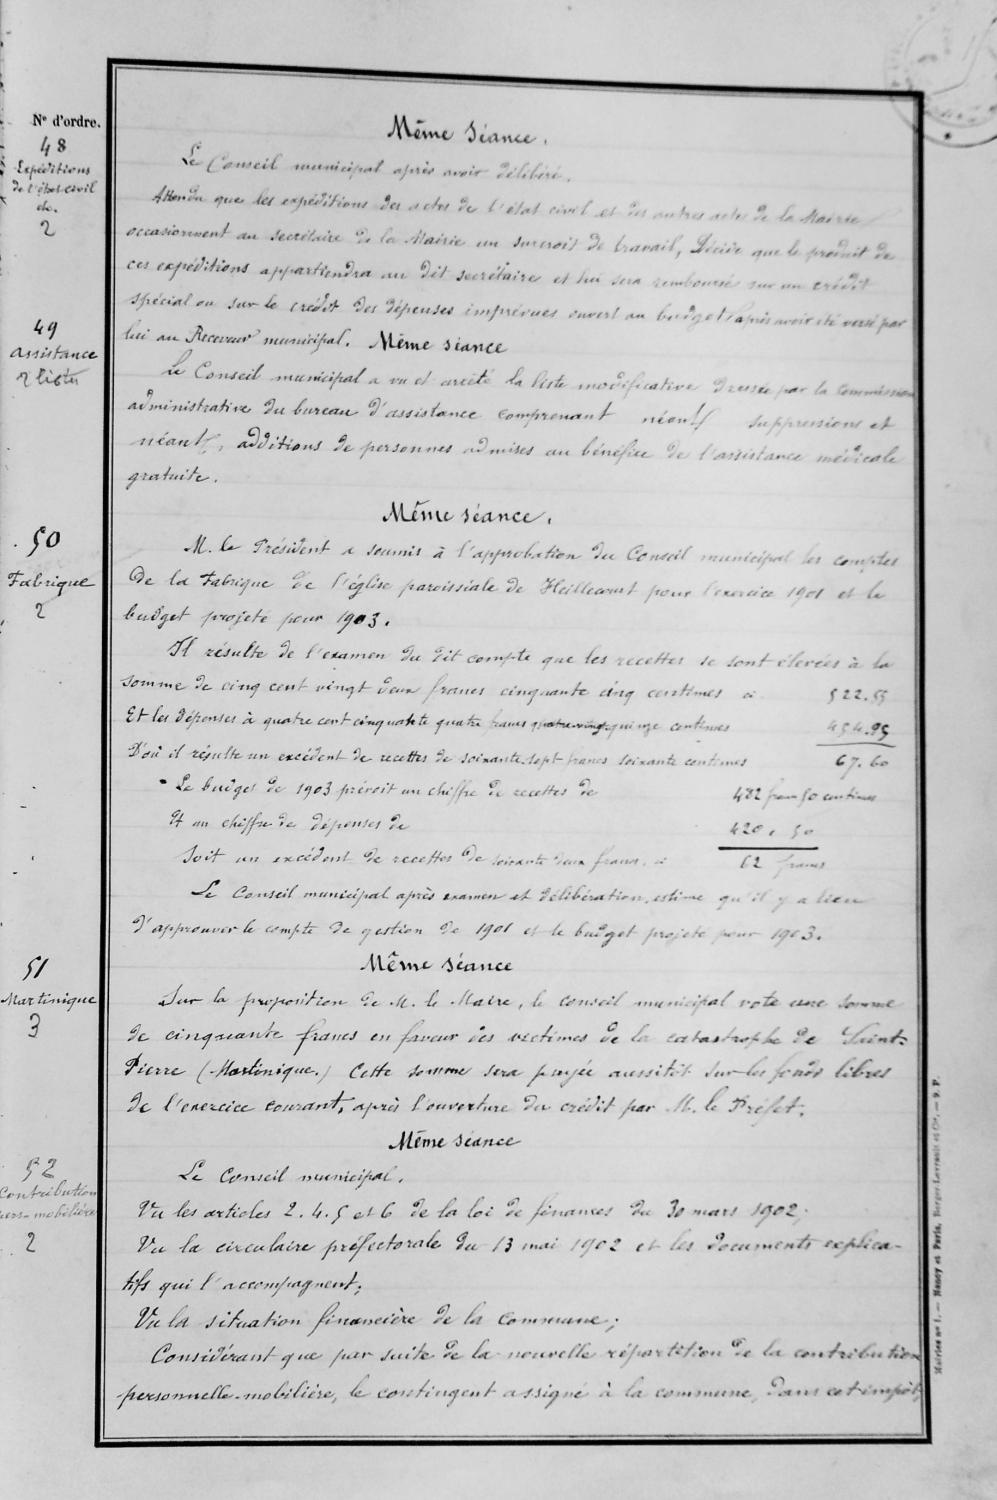 N° d'ordre.
48
Expéditions
de l'état civil
etc.
2
Même Séance.
Le Conseil municipal après avoir délibéré.
Attendu que les expéditions des actes de l'état civil et des autres actes de la Mairie
occasionnent au secrétaire de la Mairie un surcroit de travail, Décide que le produit de
ces expéditions appartiendra au dit secrétaire et lui sera remboursé sur un crédit
spécial ou sur le crédit des dépenses imprévues ouvert au budget, après avoir été versé par
lui au Receveur municipal. Même séance
49
assistance
2 liste
Le Conseil municipal a vu et arrêté la liste modificative dressée par la commission
administrative du bureau d'assistance comprenant néant suppressions et
néant, additions de personnes admises au bénéfice de l'assistance médicale
gratuite.
Même séance.
50
Fabrique
2
M. le Président a soumis à l'approbation du Conseil municipal les comptes
de la Fabrique de l'église paroissiale de Heillecourt pour l'exercice 1901 et le
budget projeté pour 1903.
Il résulte de l'examen du dit compte que les recettes se sont élevées à la
somme de cinq cent vingt deux francs cinquante cinq centimes ci 522.55
Et les dépenses à quatre cent cinquante quatre francs quatre-vingt-quinze centimes 454.95
D'où il résulte un excédent de recettes de soixante-sept francs soixante centimes 67.60
Le budget de 1903 prévoit un chiffre de recettes de 482 francs 50 centimes
Et un chiffre de dépenses de 420. 50
Soit un excédent de recettes de soixante deux francs. ci 62 francs
Le Conseil municipal après examen et délibération, estime qu'il y a lieu
d'approuver le compte de gestion de 1901 et le budget projeté pour 1903.
Même séance
51
Martinique
3
Sur la proposition de M. le Maire, le conseil municipal vote une somme
de cinquante francs en faveur des victimes de la catastrophe de Saint-
Pierre (Martinique.) Cette somme sera payée aussitôt sur les fonds libres
de l'exercice courant, après l'ouverture du crédit par M. le Préfet.
Même séance
52
Contribution
pers-mobilière
2
Le Conseil municipal.
Vu les articles 2. 4. 5 et 6 de la loi de finances du 30 mars 1902;
Vu la circulaire préfectorale du 13 mai 1902 et les documents explica-
tifs qui l'accompagnent;
Vu la situation financière de la commune;
Considérant que par suite de la nouvelle répartition de la contribution
personnelle-mobilière, le contingent assigné à la commune, dans cet impôt,
Mairies n° 1. — Nancy et Paris. Berger-Levrault et Cie. — 9. P.